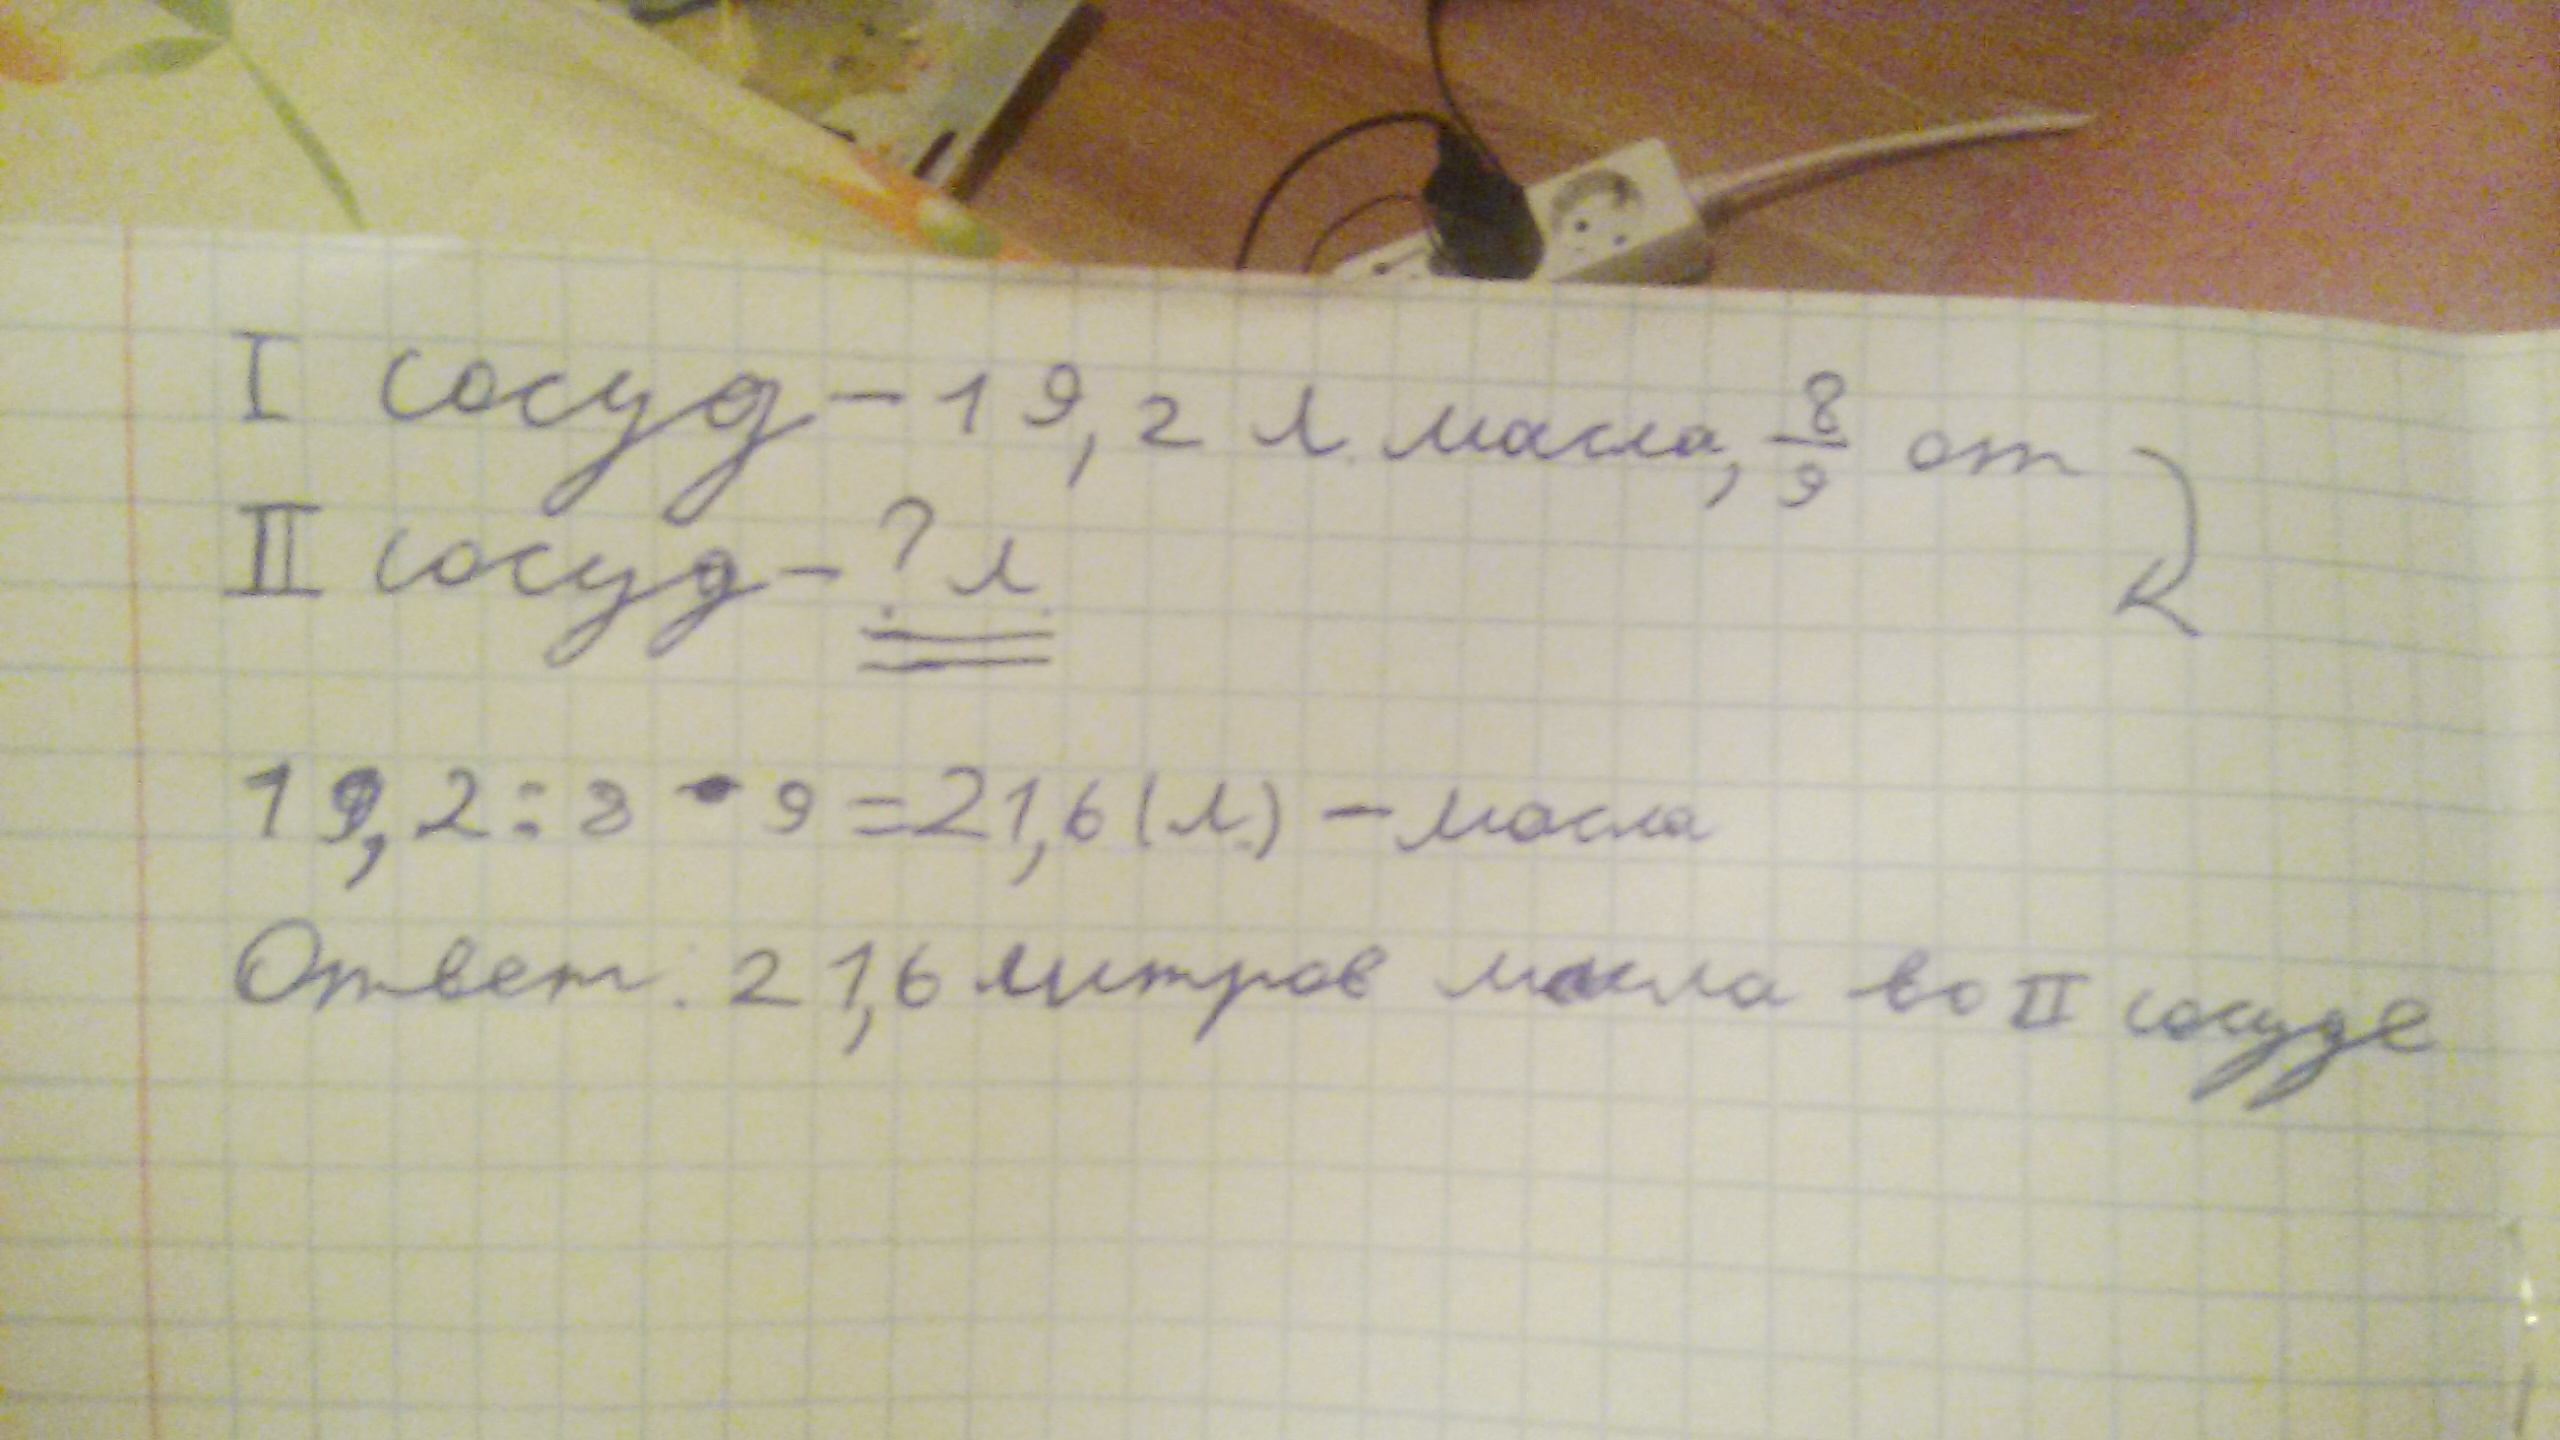 I сосуд – 19,2 л. масла, 8/9 от
II сосуд – ? л.
19,2 : 8 · 9 = 21,6 (л.) – масла
Ответ: 21,6 литров масла во II сосуде